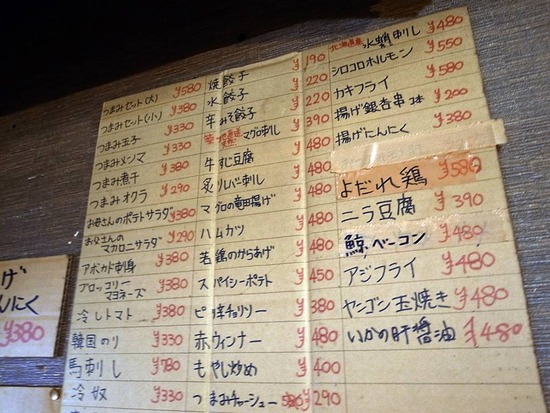 つまみセット(大) ¥580
つまみセット(小) ¥380
つまみ玉子 ¥330
つまみメンマ ¥380
つまみ煮干 ¥380
つまみオクラ ¥290
お母さんのポテトサラダ ¥380
お父さんのマカロニサラダ ¥290
アボカド刺身 ¥380
ブロッコリーマヨネーズ ¥380
冷しトマト ¥380
韓国のり ¥330
馬刺し ¥780
冷奴 ¥330
焼餃子 ¥190
水餃子 ¥220
辛みそ餃子 ¥220
マグロ刺し ¥390
牛すじ豆腐 ¥480
炙りレバ刺し ¥480
マグロの竜田揚げ ¥480
ハムカツ ¥480
若鶏のからあげ ¥480
スパイシーポテト ¥450
ピリ辛チョリソー ¥380
赤ウィンナー ¥480
もやし炒め ¥400
つまみチャーシュー ¥290
北海道産 水蛸刺し ¥480
シロコロホルモン ¥550
カキフライ ¥580
揚げ銀杏串2本 ¥200
揚げにんにく ¥380
よだれ鶏 ¥580
ニラ豆腐 ¥390
鯨ベーコン ¥480
アジフライ ¥480
ヤンゴン玉焼き ¥480
いかの肝醤油 ¥480
げ
んにく
¥380